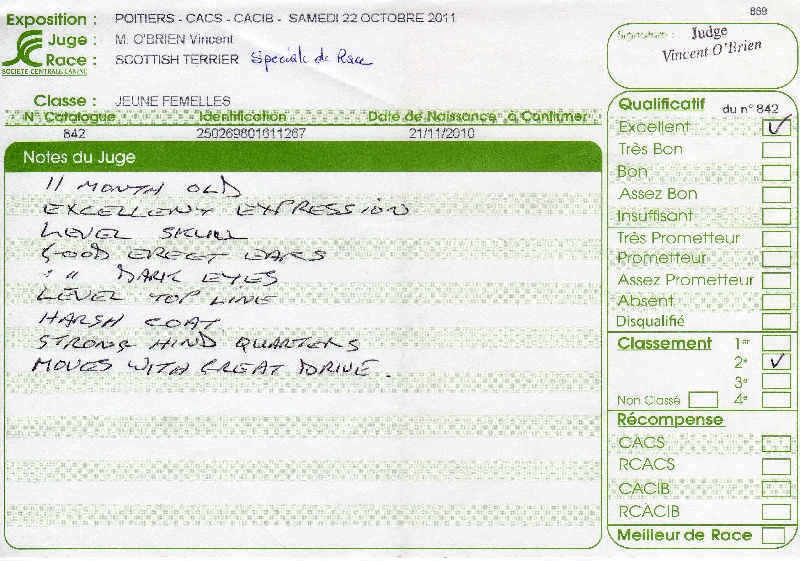 869
Exposition : POITIERS - CACS - CACIB - SAMEDI 22 OCTOBRE 2011
Juge : M. O'BRIEN Vincent
Race : SCOTTISH TERRIER Spéciale de Race
SOCIETE CENTRALE CANINE
Classe : JEUNE FEMELLES
N° Catalogue Identification Date de Naissance à Confirmer
842 250269801611267 21/11/2010
Notes du Juge
11 MONTH OLD
EXCELLENT EXPRESSION
LEVEL SKULL
GOOD ERECT EARS
" " DARK EYES
LEVEL TOP LINE
HARSH COAT
STRONG HIND QUARTERS
MOVES WITH GREAT DRIVE.
Signature : Judge
Vincent O'Brien
Qualificatif du n° 842
Excellent ✓
Très Bon
Bon
Assez Bon
Insuffisant
Très Prometteur
Prometteur
Assez Prometteur
Absent
Disqualifié
Classement 1er
2e ✓
3e
Non Classé 4e
Récompense
CACS
RCACS
CACIB
RCACIB
Meilleur de Race